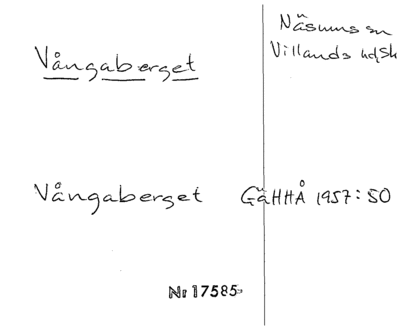 Vångaberget
Näsums sn
Villands hd, Sk
Vångaberget GäHHÅ 1957:50
Nr 17585